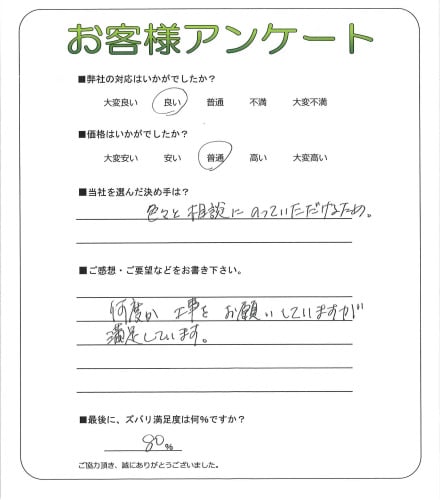 お客様アンケート
■弊社の対応はいかがでしたか？
大変良い 良い 普通 不満 大変不満
■価格はいかがでしたか？
大変安い 安い 普通 高い 大変高い
■当社を選んだ決め手は？
色々と相談にのっていただけるため。
■ご感想・ご要望などをお書き下さい。
何度か工事をお願いしていますが
満足しています。
■最後に、ズバリ満足度は何%ですか？
80%
ご協力頂き、誠にありがとうございました。